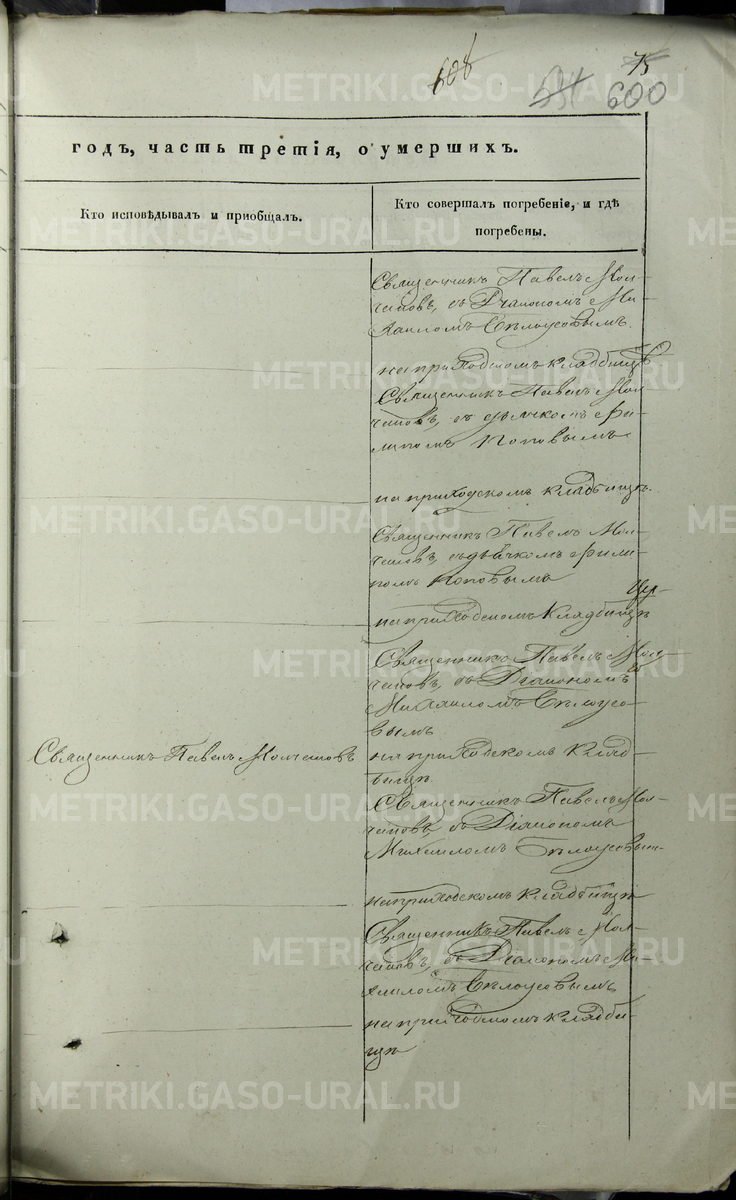 608
594
75
600
годъ, часть третія, о умершихъ.
Кто исповѣдывалъ и пріобщалъ.
Кто совершалъ погребеніе, и гдѣ
погребены.
Священникъ Павелъ Мол-
чановъ, съ Діакономъ Ми-
хаиломъ Бѣлоусовымъ
на приходскомъ кладбищѣ
Священникъ Павелъ Мол-
чановъ, съ дьячкомъ Фи-
липомъ Поповымъ
на приходскомъ кладбищѣ.
Священникъ Павелъ Мол-
чановъ, съ дьячкомъ Фили-
помъ Поповымъ
на приходскомъ кладбищѣ
Священникъ Павелъ Мол-
чановъ, съ Діакономъ
Михаиломъ Бѣлоусо-
вымъ
Священникъ Павелъ Молчановъ
на приходскомъ клад-
бищѣ
Священникъ Павелъ Мол-
чановъ, съ Діакономъ
Михаиломъ Бѣлоусовым-
на приходскомъ кладбищѣ
Священникъ Павелъ Мол-
чановъ, съ Діакономъ Ми-
хаиломъ Бѣлоусовымъ
на приходскомъ кладби-
щѣ
METRIKI.GASO-URAL.RU